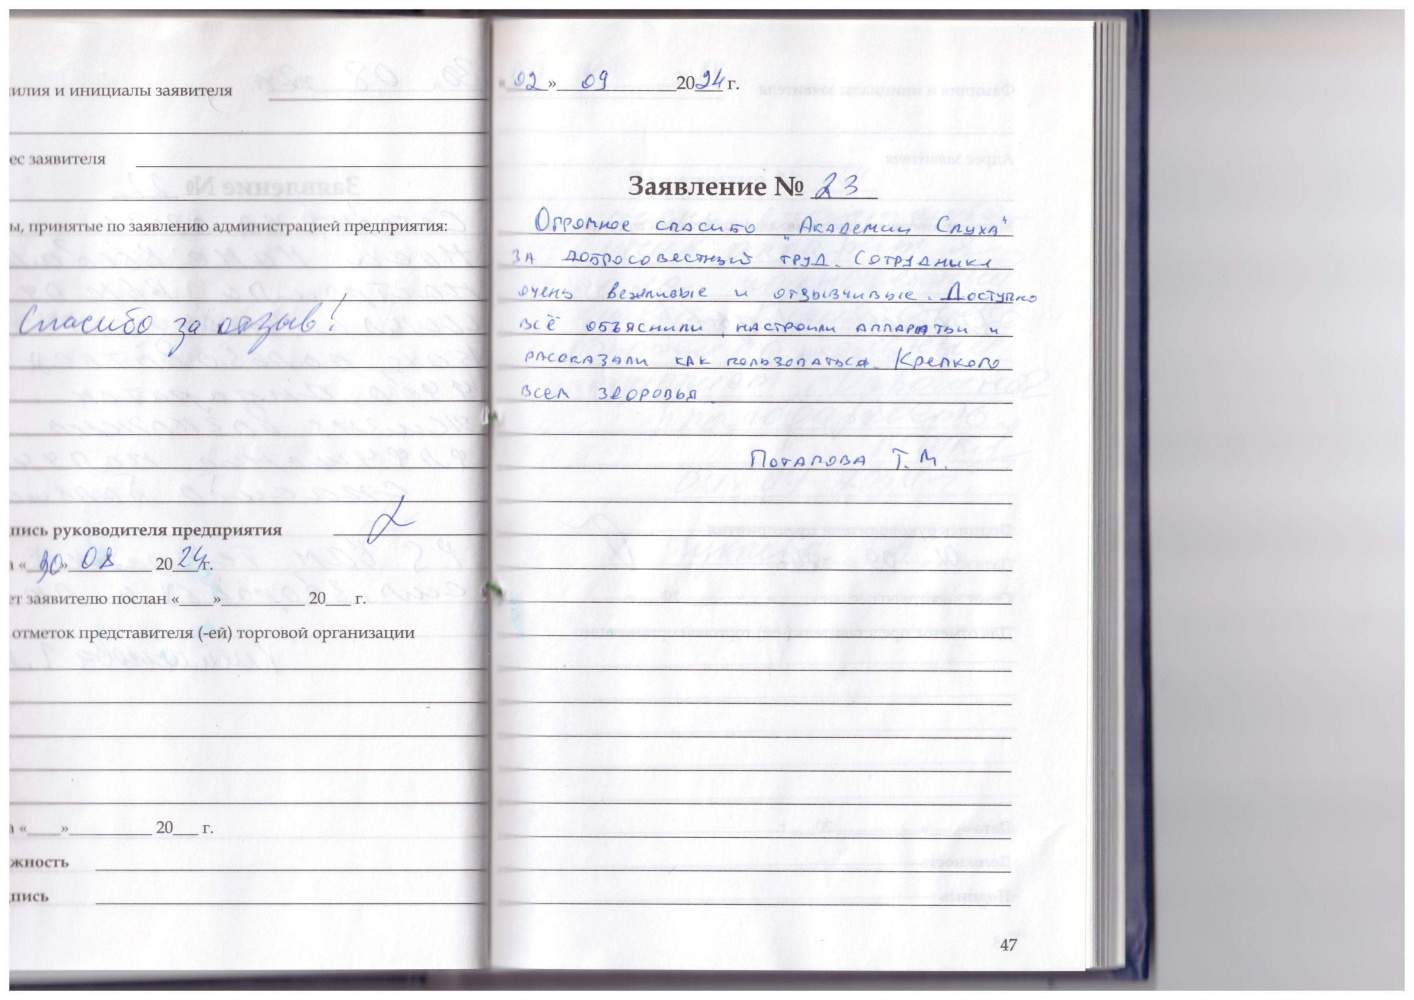 илия и инициалы заявителя
ес заявителя
ы, принятые по заявлению администрацией предприятия:
Спасибо за отзыв!
пись руководителя предприятия
а «30» 08 2024г.
ет заявителю послан «____»__________ 20___ г.
отметок представителя (-ей) торговой организации
а «____»__________ 20___ г.
жность
пись
«02» 09 2024 г.
Заявление № 23
Огромное спасибо "Академии Слуха"
за добросовестный труд. Сотрудники
очень вежливые и отзывчивые. Доступно
всё объяснили, настроили аппараты и
рассказали как пользоваться. Крепкого
всем здоровья.
Потапова Т.М.
47